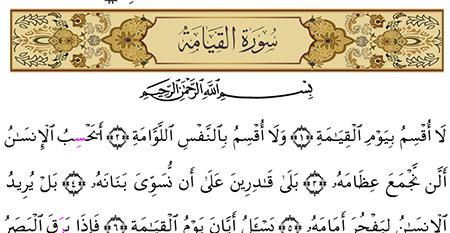 سُورَةُ القِيَامَةِ
بِسْمِ ٱللَّهِ ٱلرَّحْمَٰنِ ٱلرَّحِيمِ
لَآ أُقْسِمُ بِيَوْمِ ٱلْقِيَٰمَةِ ﴿١﴾ وَلَآ أُقْسِمُ بِٱلنَّفْسِ ٱللَّوَّامَةِ ﴿٢﴾ أَيَحْسِبُ ٱلْإِنسَٰنُ
أَلَّن نَّجْمَعَ عِظَامَهُۥ ﴿٣﴾ بَلَىٰ قَٰدِرِينَ عَلَىٰٓ أَن نُّسَوِّىَ بَنَانَهُۥ ﴿٤﴾ بَلْ يُرِيدُ
ٱلْإِنسَٰنُ لِيَفْجُرَ أَمَامَهُۥ ﴿٥﴾ يَسْـَٔلُ أَيَّانَ يَوْمُ ٱلْقِيَٰمَةِ ﴿٦﴾ فَإِذَا بَرَقَ ٱلْبَصَرُ